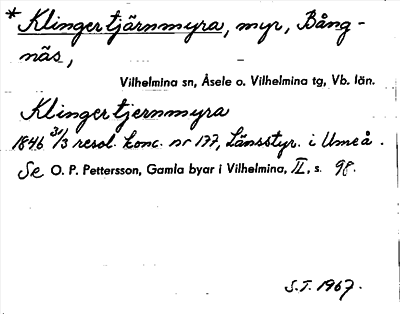 * Klingertjärnmyra, myr, Bång-
näs,
Vilhelmina sn, Åsele o. Vilhelmina tg, Vb. län.
Klingertjernmyra
1846 31/3 resol. konc. nr 177, Länsstyr. i Umeå.
Se O. P. Pettersson, Gamla byar i Vilhelmina, II, s. 98.
S.T. 1967.